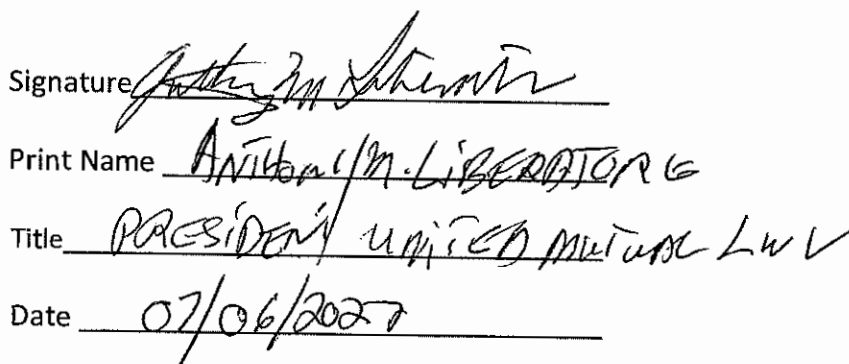 Signature Anthony M Liberatore
Print Name ANTHONY M. LIBERATORE
Title PRESIDENT UNITED MUTUAL LWV
Date 07/06/202